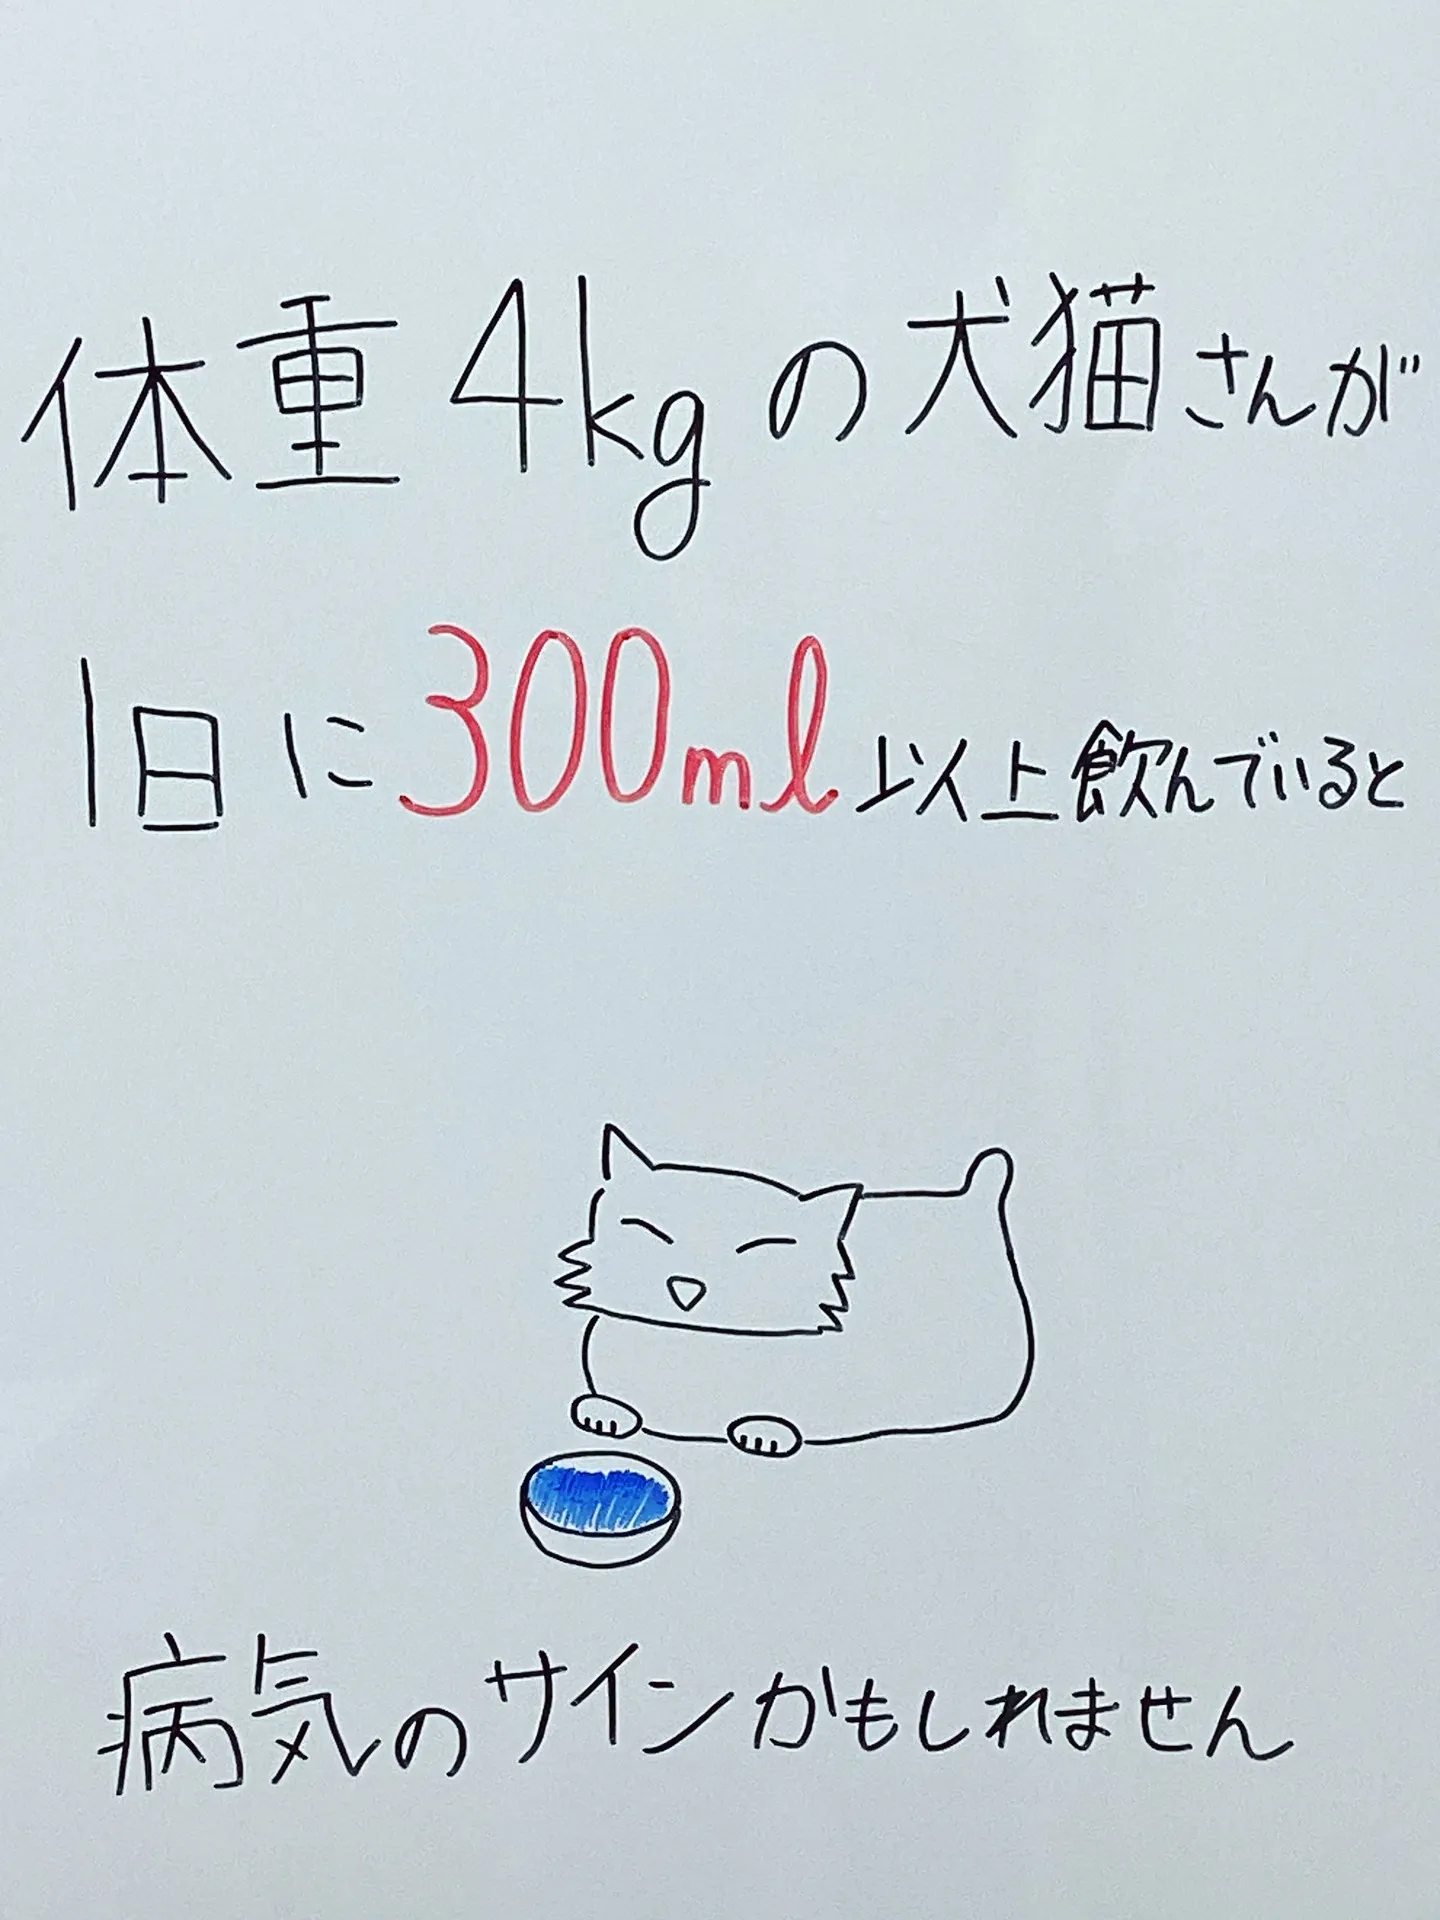 体重4kgの犬猫さんが
1日に300ml以上飲んでいると
病気のサインかもしれません